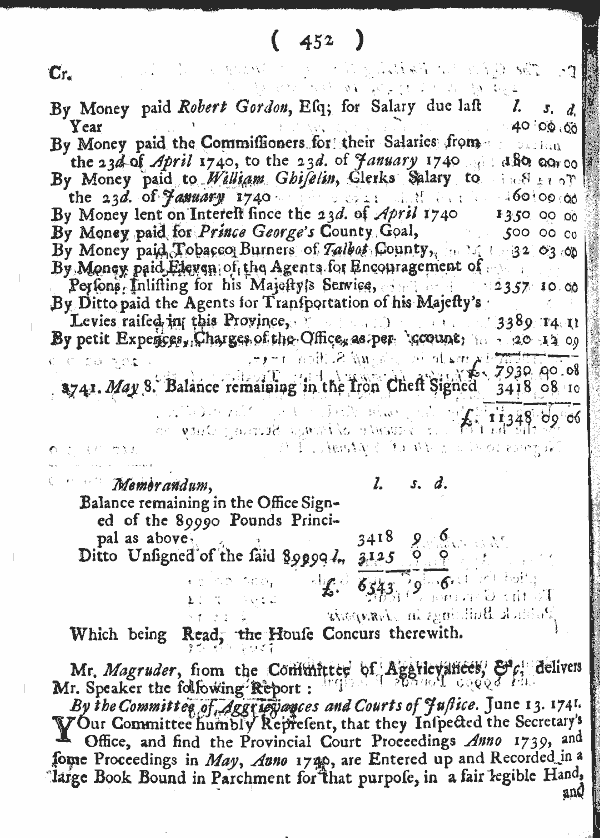 ( 452 )
Cr.
By Money paid Robert Gordon, Eſq; for Salary due laſt l. s. d.
Year 40 00 00
By Money paid the Commiſſioners for their Salaries from
the 23d of April 1740, to the 23d. of January 1740 180 00 00
By Money paid to William Ghiſelin, Clerks Salary to
the 23d. of January 1740 60 00 00
By Money lent on Intereſt ſince the 23d. of April 1740 1350 00 00
By Money paid for Prince George's County Goal, 500 00 00
By Money paid Tobacco Burners of Talbot County, 32 03 00
By Money paid Eleven of the Agents for Encouragement of
Perſons Inliſting for his Majeſty's Service, 2357 10 00
By Ditto paid the Agents for Tranſportation of his Majeſty's
Levies raiſed in this Province, 3389 14 11
By petit Expences, Charges of the Office, as per ccount; 20 12 09
£. 7930 00 08
1741. May 8. Balance remaining in the Iron Cheſt Signed 3418 08 10
£. 11348 09 06
Memorandum, l. s. d.
Balance remaining in the Office Sign-
ed of the 89990 Pounds Princi-
pal as above 3418 9 6
Ditto Unſigned of the ſaid 89990 l., 3125 0 0
£. 6543 9 6
Which being Read, the Houſe Concurs therewith.
Mr. Magruder, from the Committee of Aggrievances, &c. delivers
Mr. Speaker the following Report :
By the Committee of Aggrievances and Courts of Juſtice. June 13. 1741.
YOur Committee humbly Repreſent, that they Inſpected the Secretary's
Office, and find the Provincial Court Proceedings Anno 1739, and
ſome Proceedings in May, Anno 1740, are Entered up and Recorded in a
large Book Bound in Parchment for that purpoſe, in a fair legible Hand,
and